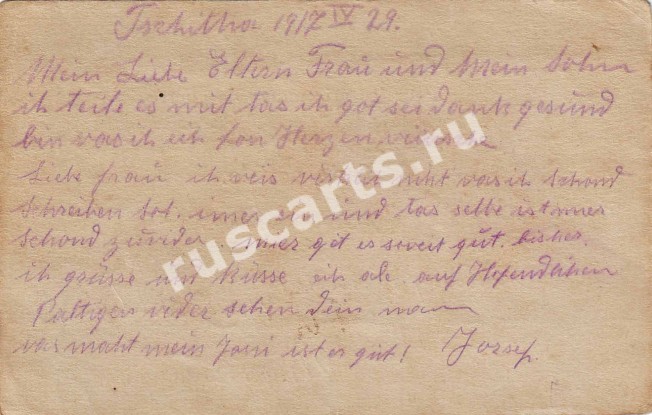 Tschitha 1917 IV 29.
Mein Liebe Eltern Frau und Mein Sohn
ich teile es mit tas ich got sei dank gesund
bin vas ich eich fon Herzen
Liebe frau ich veis nicht vas ich schond
schreiben sol. imer ein und tas selbe ist mier
schond zuvider. mier get es soveit gut. bisher.
ich grüsse und Küsse eich ale auf
Paltigen veder sehen Dein man
vas macht mein Joni ist er gut! Jozsef.
ruscarts.ru